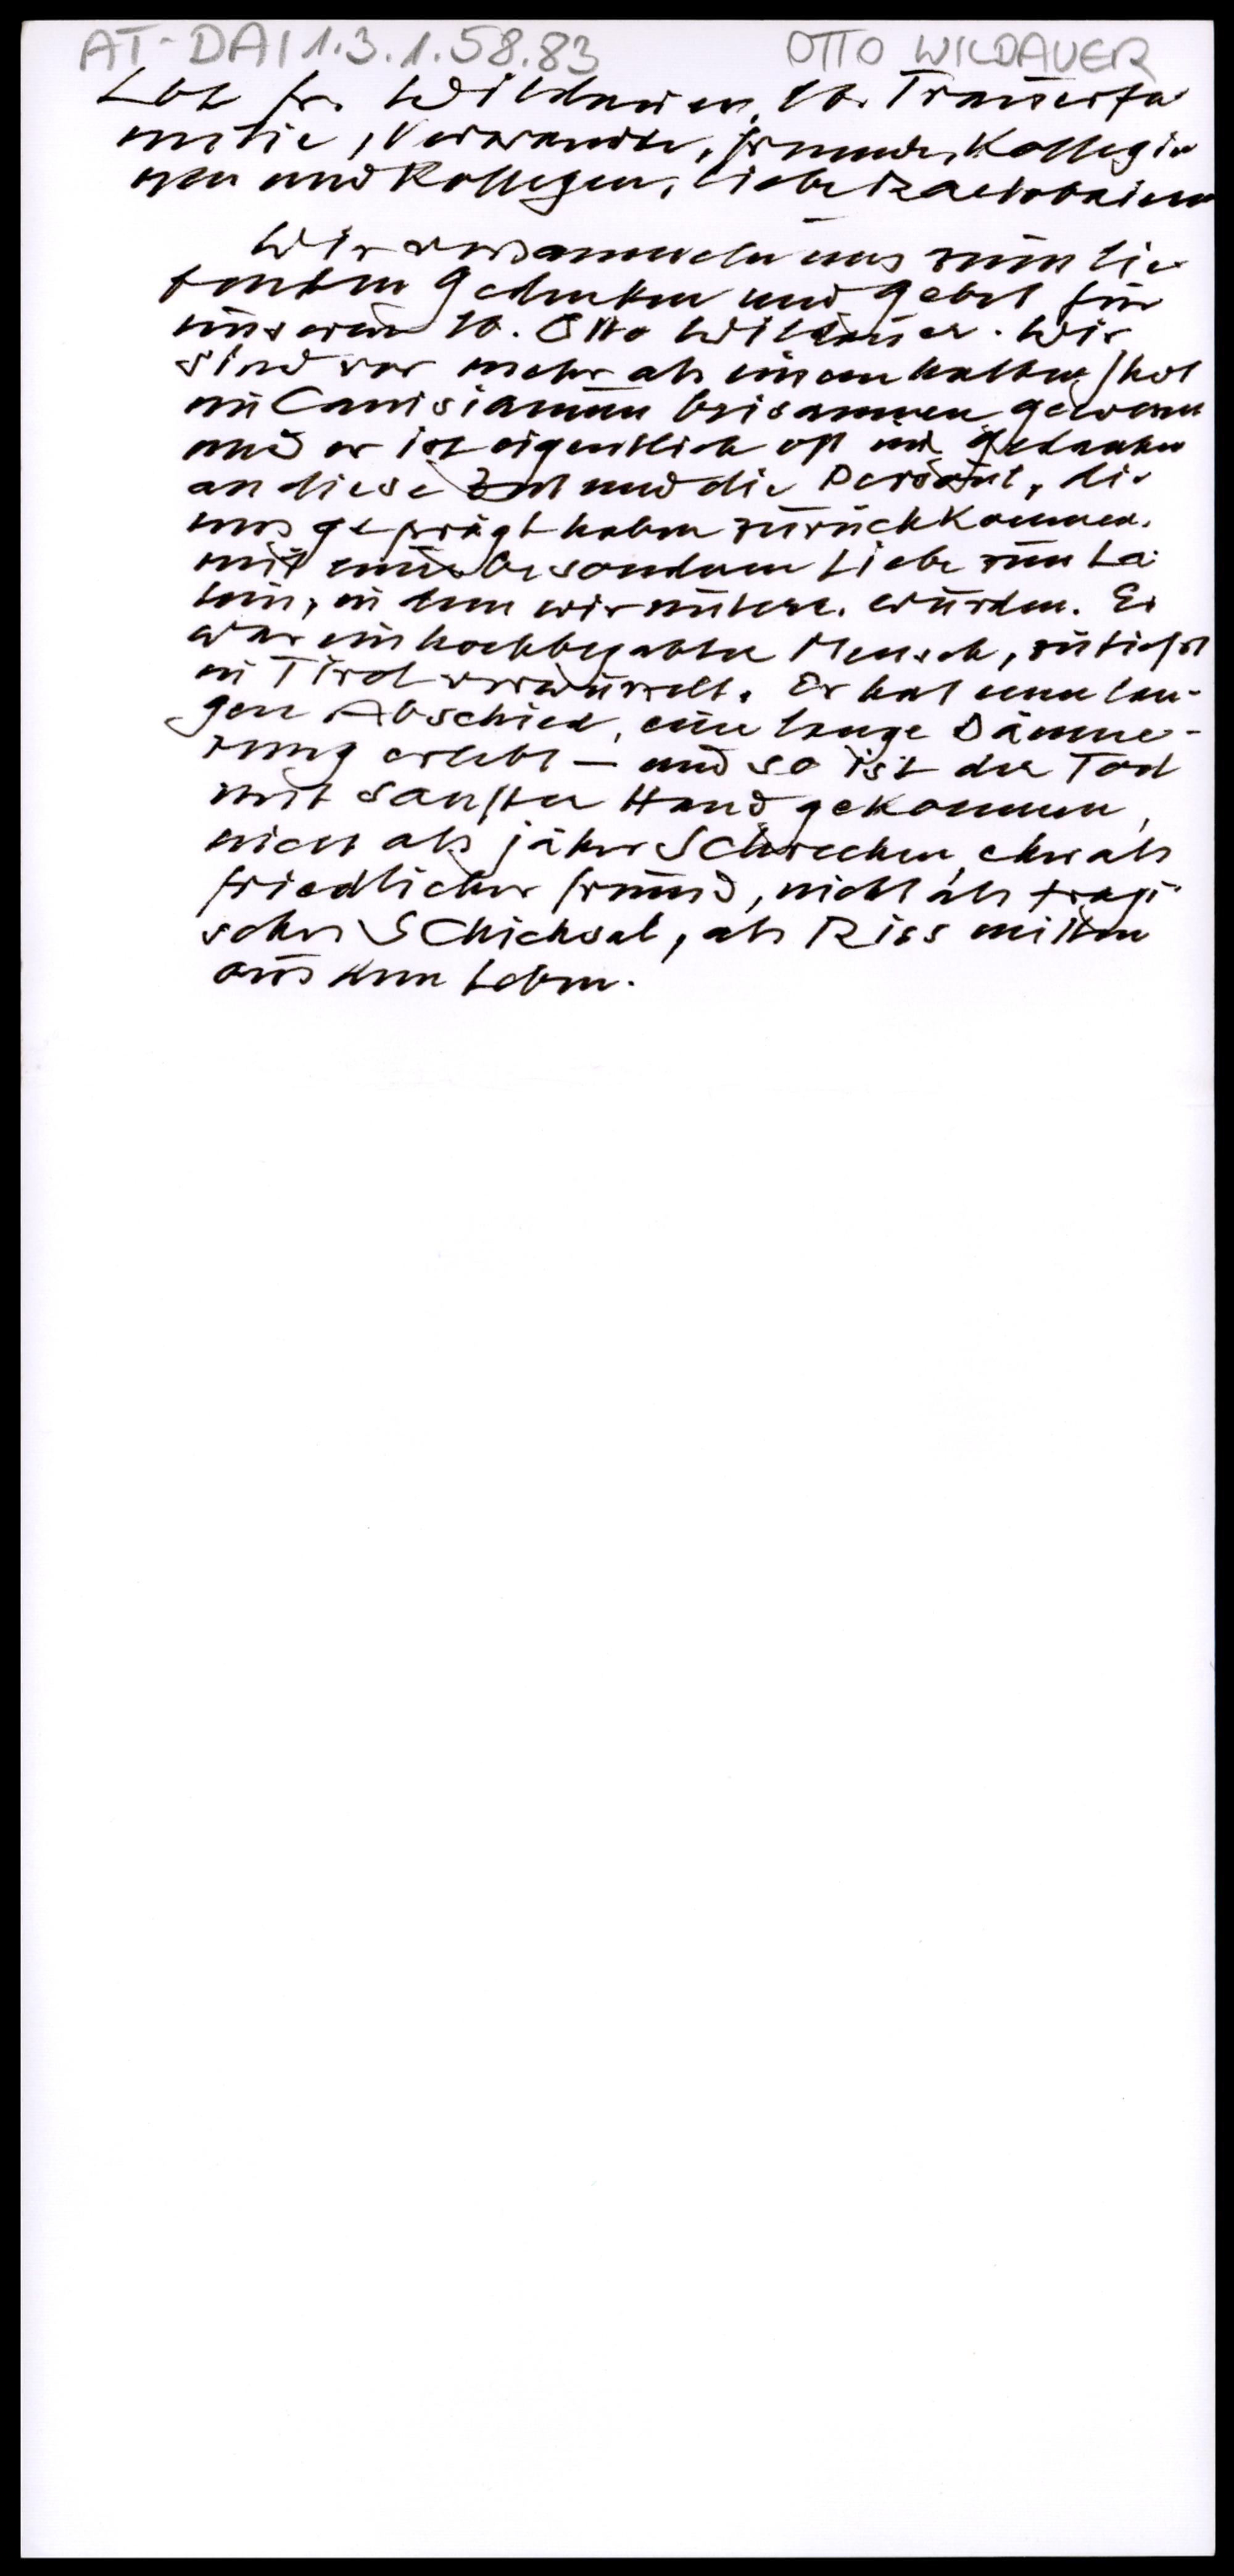 AT-DAI 1.3.1.58.83 OTTO WILDAUER
Lbe Fr. Wildauer, lb. Trauerfa
milie, Verwandte, Freunde, Kollegin
nen und Kollegen, liebe Raetobaiern
Wir versammeln uns zum lie
benden Gedenken und Gebet für
unseren lb. Otto Wildauer. Wir
sind vor mehr als einem halben Jhdt
im Canisianum beisammen gewesen
und er ist eigentlich oft mit Gedanken
an diese Zeit und die Persönl., die
uns geprägt haben zurückkommen.
mit einer besonderen Liebe zum La
tein, in dem wir unterr. wurden. Er
war ein hochbegabter Mensch, zutiefst
in Tirol verwurzelt. Er hat einen lan-
gen Abschied, eine lange Dämme-
rung erlebt – und so ist der Tod
mit sanfter Hand gekommen,
nicht als jäher Schrecken, eher als
friedlicher Freund, nicht als tragi
sches Schicksal, als Riss mitten
aus dem Leben.